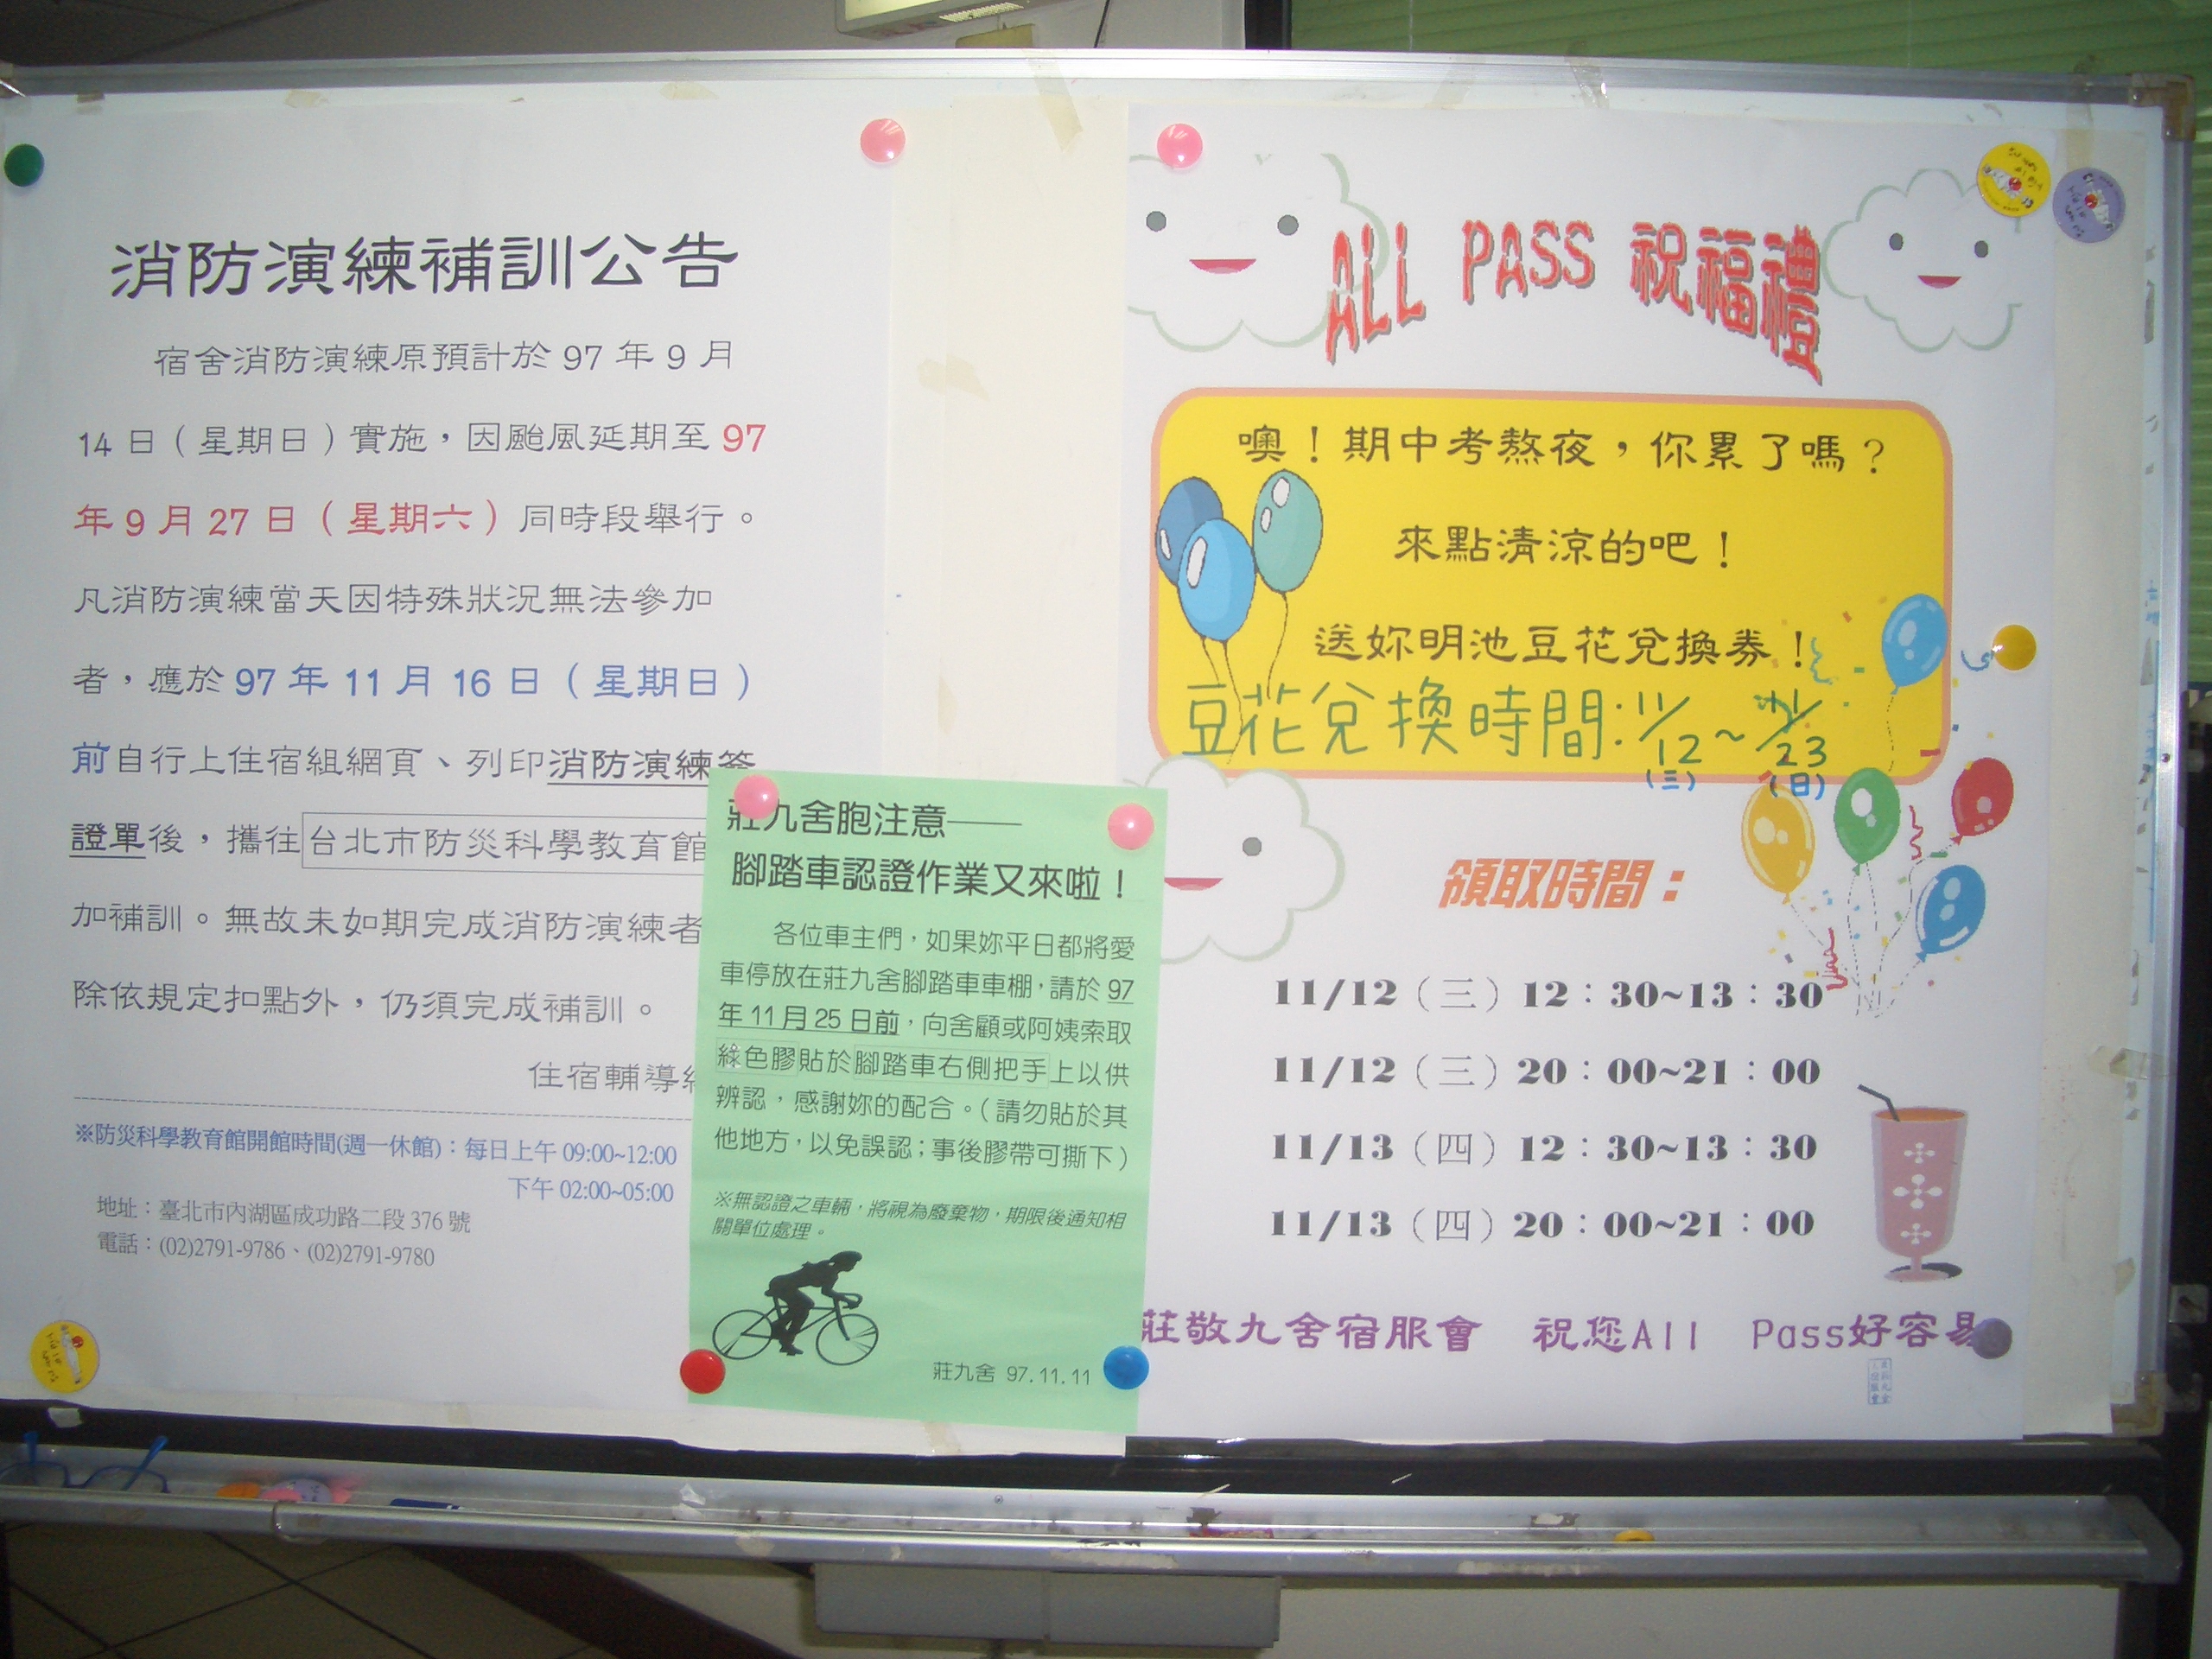 消防演練補訓公告
宿舍消防演練原預計於 97 年 9 月
14 日（星期日）實施，因颱風延期至 97
年 9 月 27 日（星期六）同時段舉行。
凡消防演練當天因特殊狀況無法參加
者，應於 97 年 11 月 16 日（星期日）
前自行上住宿組網頁、列印消防演練簽
證單後，攜往台北市防災科學教育館
加補訓。無故未如期完成消防演練者
除依規定扣點外，仍須完成補訓。
住宿輔導
※防災科學教育館開館時間(週一休館)：每日上午 09:00~12:00
下午 02:00~05:00
地址：臺北市內湖區成功路二段 376 號
電話：(02)2791-9786、(02)2791-9780
莊九舍胞注意——
腳踏車認證作業又來啦！
各位車主們，如果妳平日都將愛
車停放在莊九舍腳踏車車棚，請於 97
年 11 月 25 日前，向舍顧或阿姨索取
綠色膠貼於腳踏車右側把手上以供
辨認，感謝妳的配合。（請勿貼於其
他地方，以免誤認；事後膠帶可撕下）
※無認證之車輛，將視為廢棄物，期限後通知相
關單位處理。
莊九舍 97.11.11
ALL PASS 祝福禮
噢！期中考熬夜，你累了嗎？
來點清涼的吧！
送妳明池豆花兌換券！
豆花兌換時間：11/12(三)~11/23(日)
領取時間：
11/12（三）12：30~13：30
11/12（三）20：00~21：00
11/13（四）12：30~13：30
11/13（四）20：00~21：00
莊敬九舍宿服會 祝您All Pass好容易